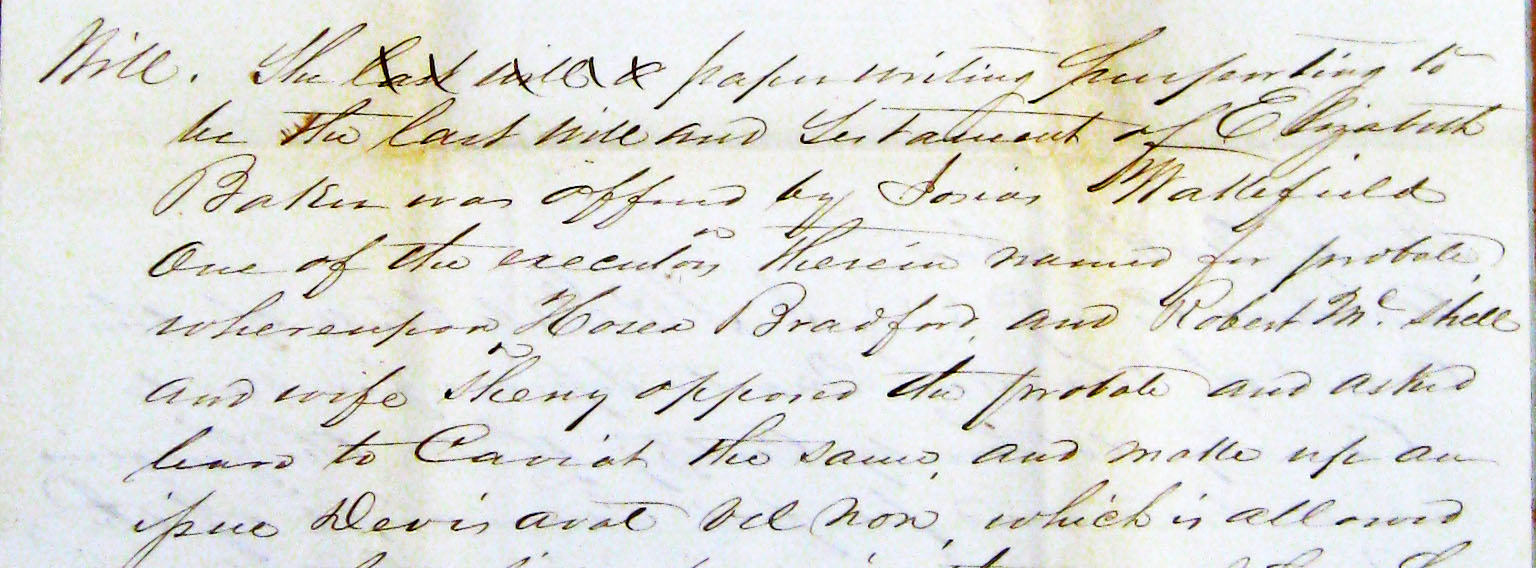 Will. The last will & paper writing purporting to
be the last will and testament of Elizabeth
Baker was offered by Josias Wakefield
One of the executors therein named for probate,
whereupon Hosea Bradford, and Robert Mc. Shell
and wife opposed the probate and asked
leave to Caviat the same, and make up an
issue Devisavat vel non, which is allowed